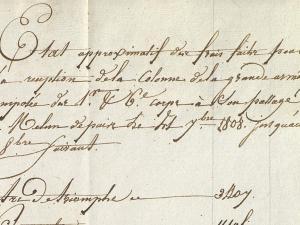 Etat approximatif des frais faits pour
la reception de la Colonne de la grande armée
composée des 1.er & 6.e corps à Son passage
Melun depuis le 7bre 1808. jusqu'au
8bre Suivant.
Arc de triomphe